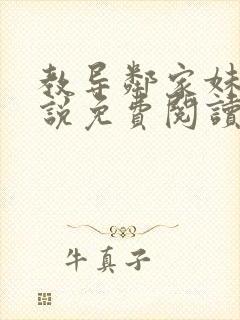 教导鄰家妹
說免費閱讀
牛真子